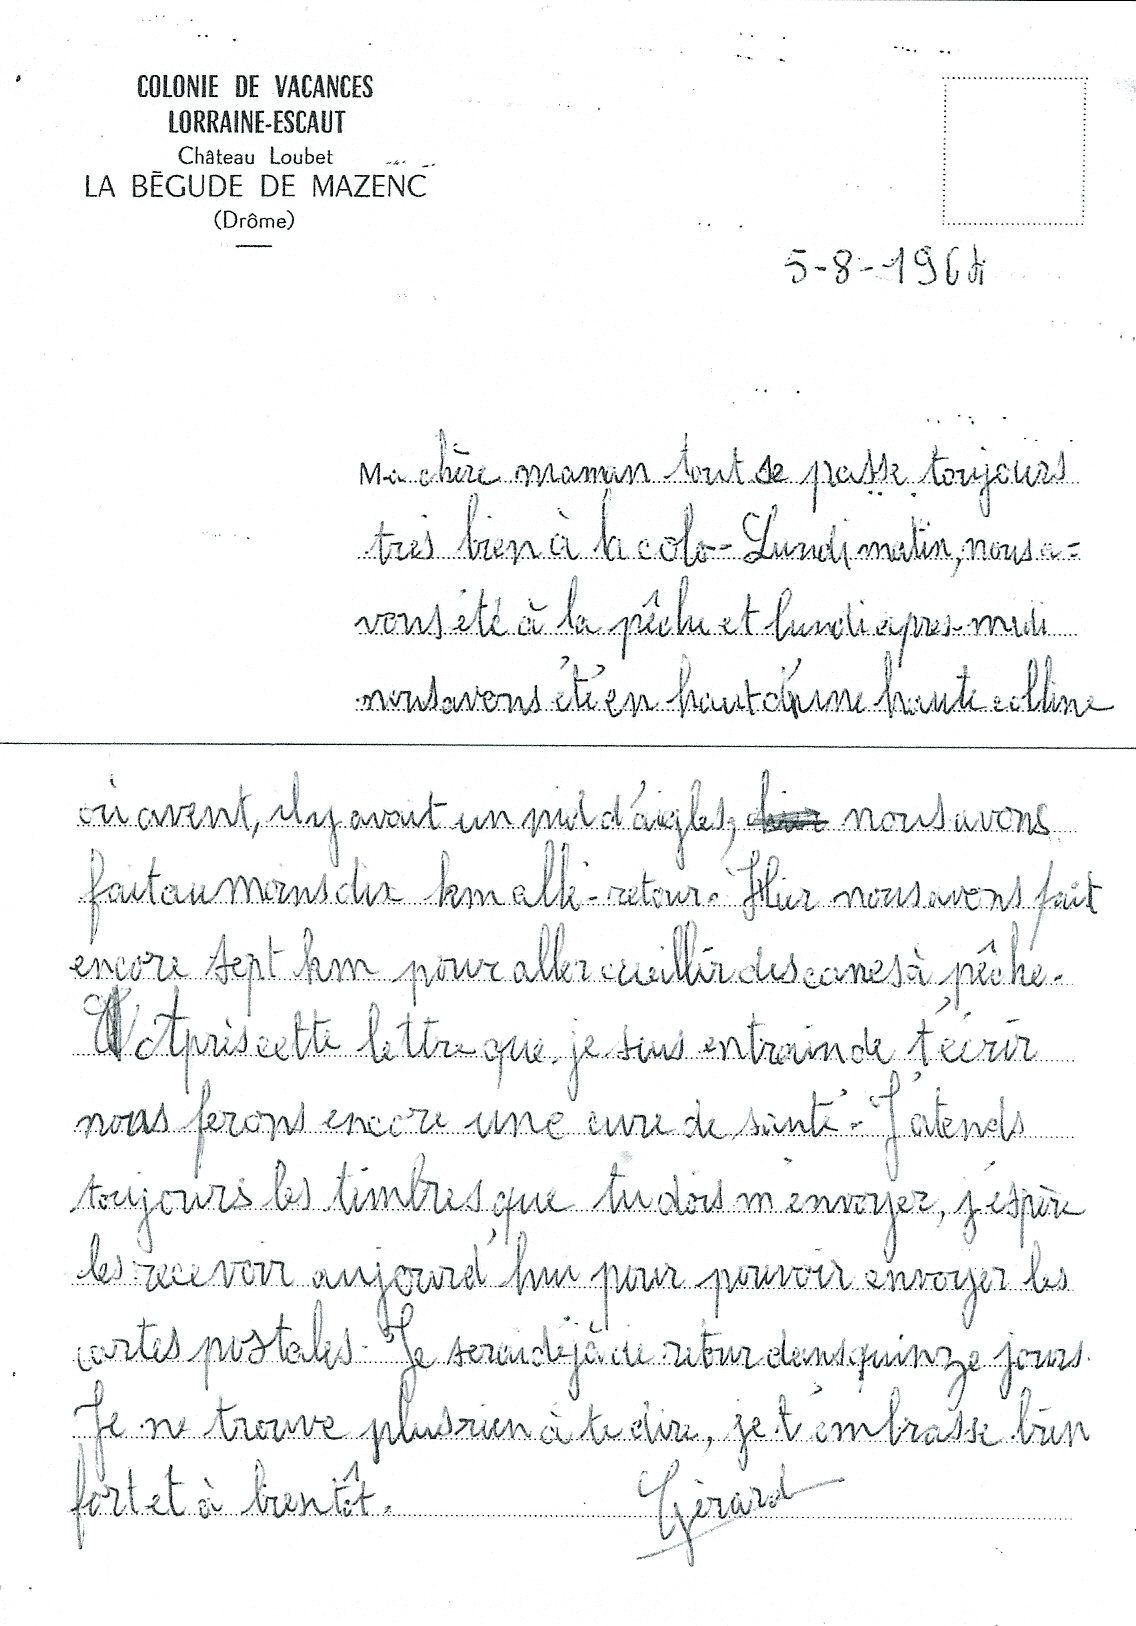 COLONIE DE VACANCES
LORRAINE-ESCAUT
Château Loubet
LA BÉGUDE DE MAZENC
(Drôme)
5-8-1964
Ma chère maman tout se passe toujours
très bien à la colo - Lundi matin, nous a-
vons été à la pêche et lundi après-midi
nous avons été en haut d'une haute colline
où avent, il y avait un nid d'aigles, nous avons
fait au moins dix km allé-retour. Hier nous avons fait
encore sept km pour aller cueillir des canes à pêche.
Après cette lettre que je suis entrain de t'écrir
nous ferons encore une cure de santé. J'atends
toujours les timbres que tu dois m'envoyer, j'éspère
les recevoir aujourd'hui pour pouvoir envoyer les
cartes postales. Je serai déjà de retour dans quinze jours.
Je ne trouve plus rien à te dire, je t'embrasse bien
fort et à bientôt. Gérard